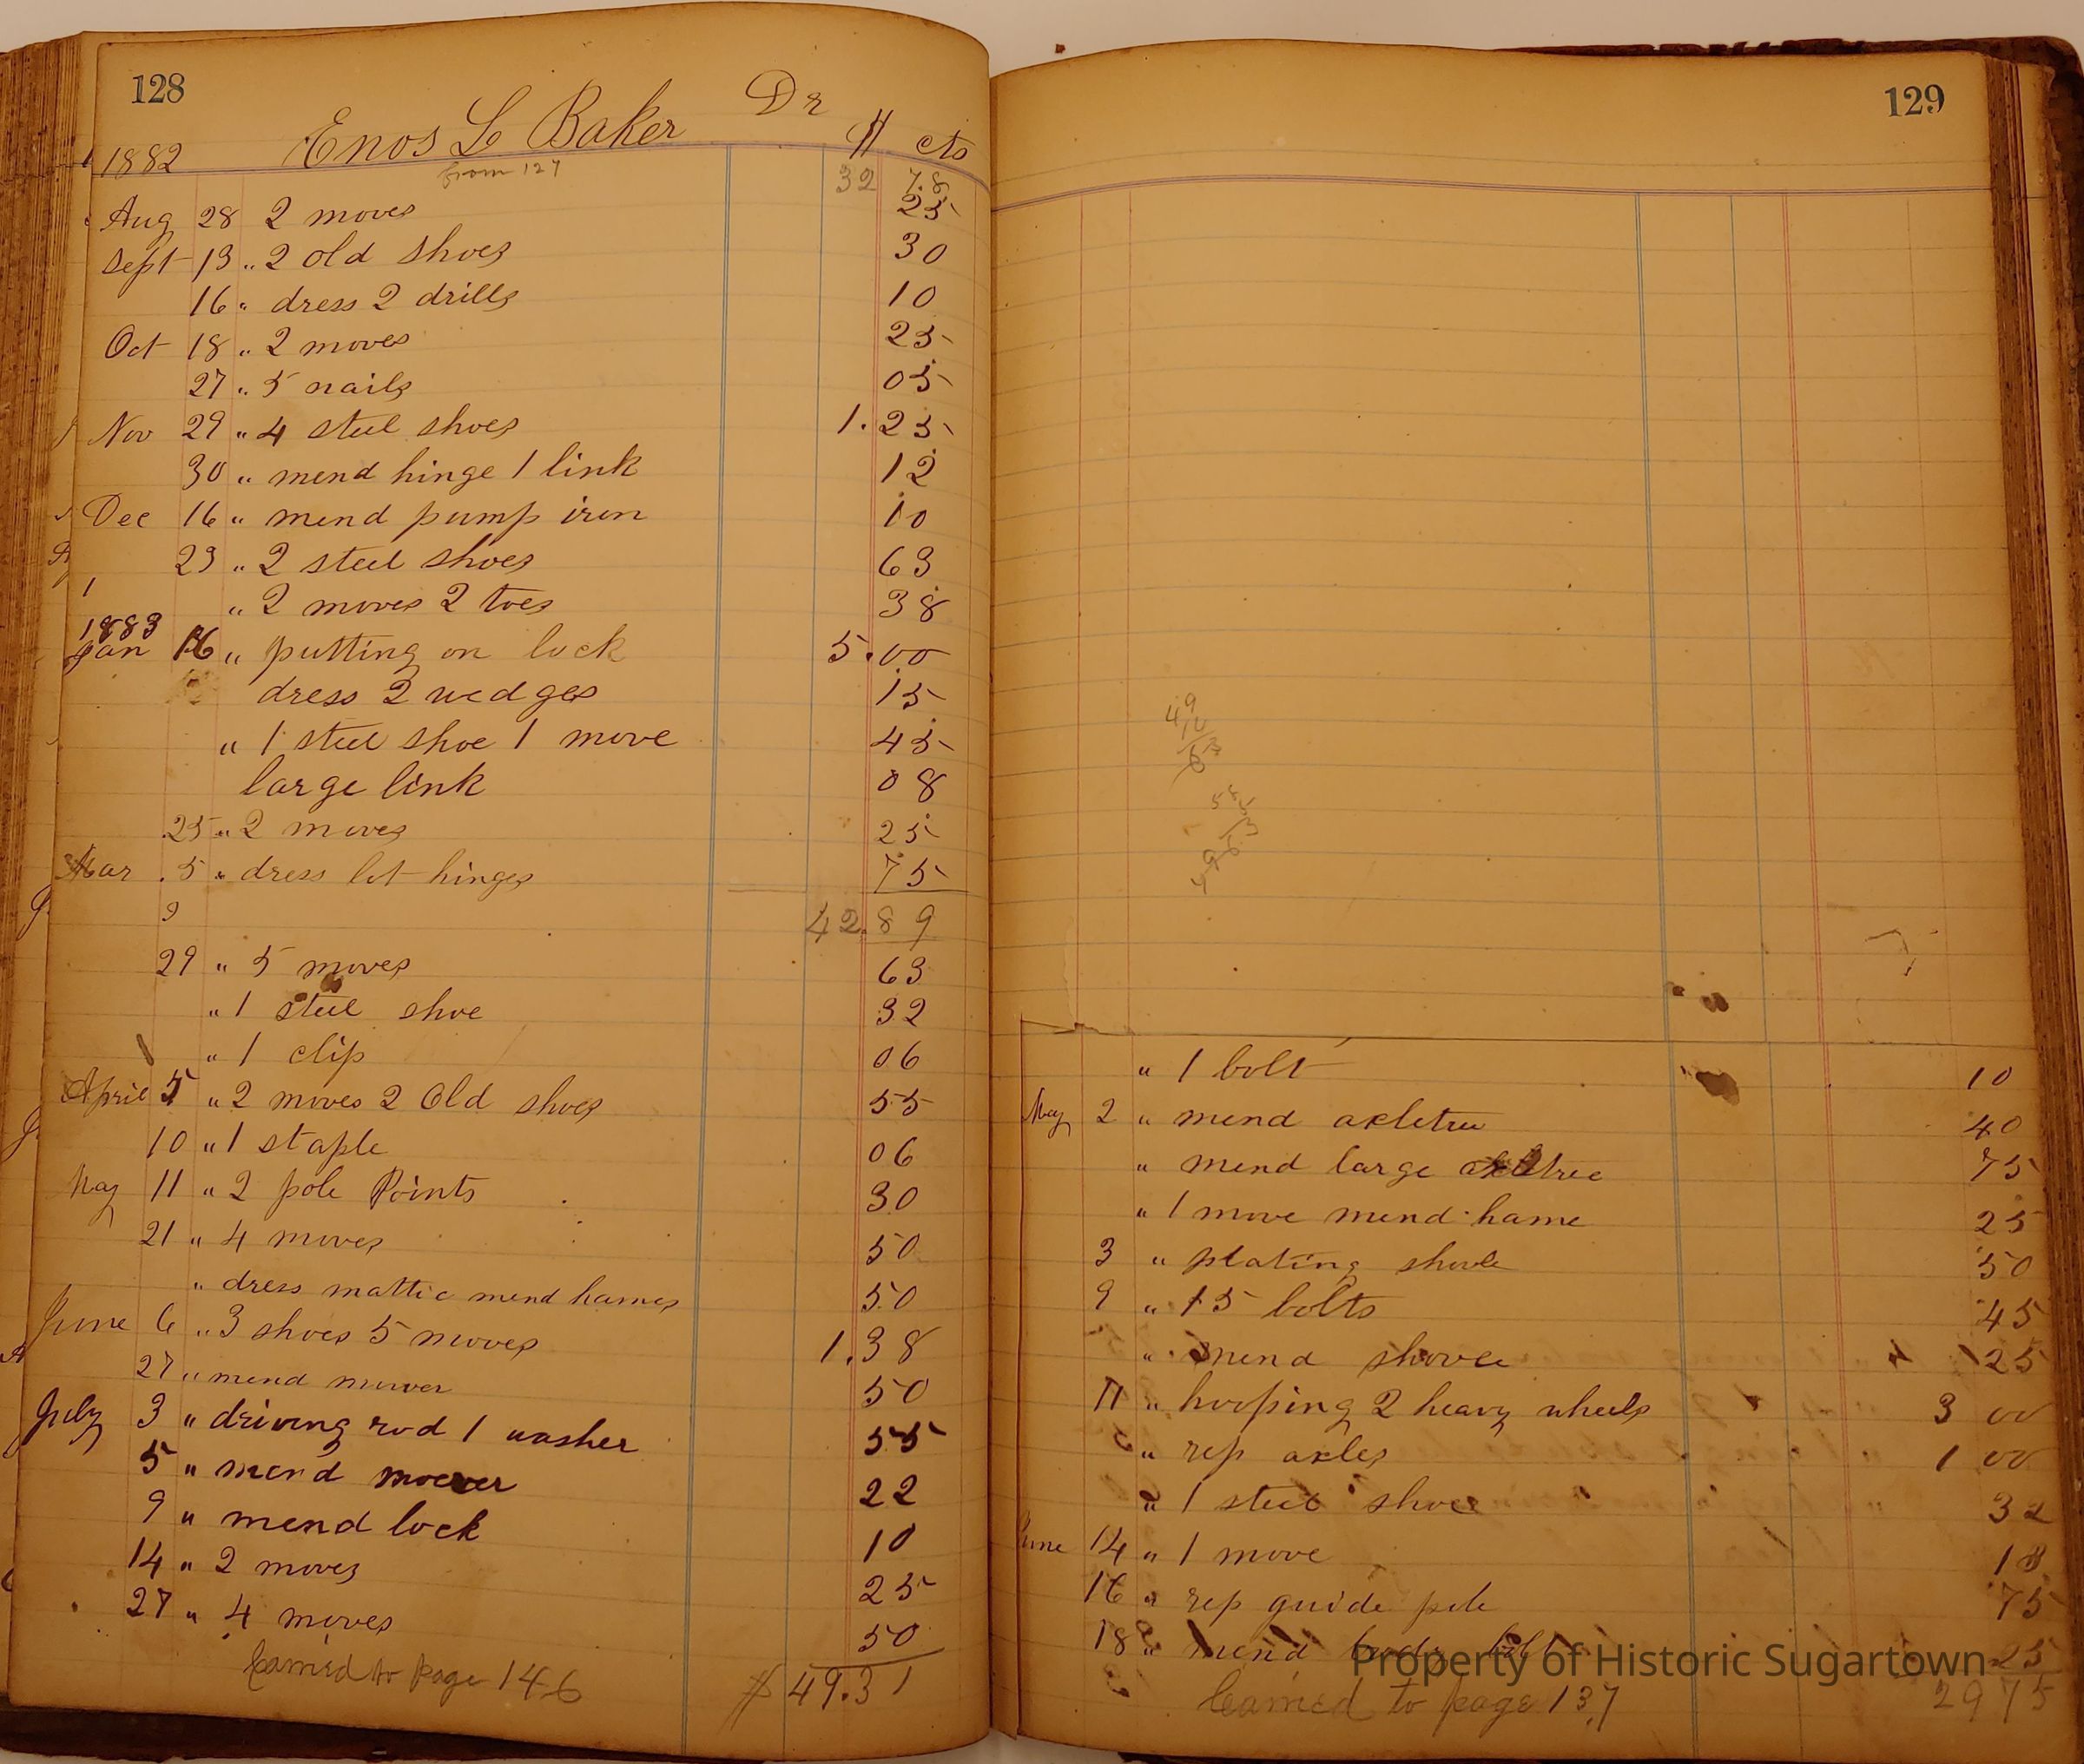 128
Enos L Baker Dr
1882 $ cts
from 127 32 78
Aug 28 2 moves 25
Sept 13 " 2 old shoes 30
16 " dress 2 drills 10
Oct 18 " 2 moves 25
27 " 5 nails 05
Nov 29 " 4 steel shoes 1.25
30 " mend hinge 1 link 12
Dec 16 " mend pump iron 10
23 " 2 steel shoes 63
" 2 moves 2 toes 38
1883
Jan 16 " putting on lock 5.00
dress 2 wedges 15
" 1 steel shoe 1 move 45
large link 08
25 " 2 moves 25
Mar 5 " dress lot hinges 75
9 42.89
29 " 5 moves 63
" 1 steel shoe 32
" 1 clip 06
April 5 " 2 moves 2 Old shoes 55
10 " 1 staple 06
May 11 " 2 pole Points 30
21 " 4 moves 50
" dress mattic mend hames 50
June 6 " 3 shoes 5 moves 1.38
27 " mend mower 50
July 3 " driving rod 1 washer 55
5 " mend mower 22
9 " mend lock 10
14 " 2 moves 25
27 " 4 moves 50
Carried to page 146 $ 49.31
129
" 1 bolt 10
May 2 " mend axletree 40
" mend large axletree 75
" 1 move mend hame 25
3 " plating shovle 50
9 " 15 bolts 45
" mend shovle 25
11 " hooping 2 heavy wheels 3 00
" rep axles 1 00
" 1 steel shoe 32
June 14 " 1 move 13
16 " rep guide pole 75
18 " mend body bolt 25
Carried to page 137 2975
Property of Historic Sugartown